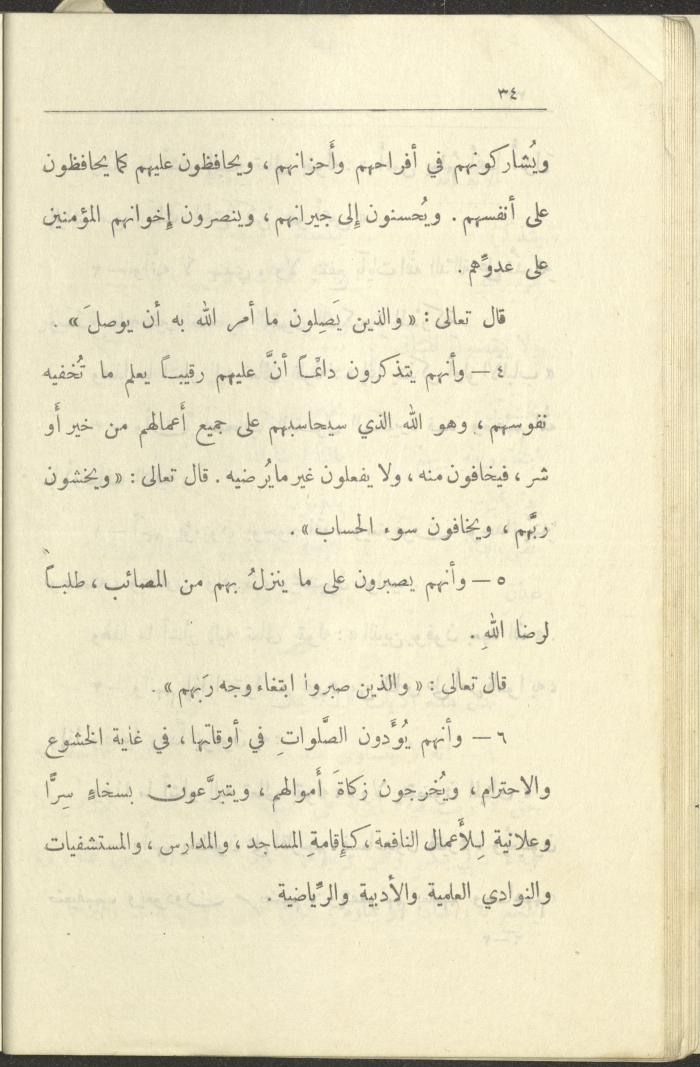 ٣٤
ويُشاركونهم في أفراحهم وأَحزانهم ، ويحافظون عليهم كما يحافظون
على أنفسهم . ويُحسنون إلى جيرانهم ، وينصرون إخوانهم المؤمنين
على عدوِّهم .
قال تعالى : « والذين يَصِلون ما أمر الله به أن يوصلَ » .
٤ — وأنهم يتذكرون دائمًا أنَّ عليهم رقيبًا يعلم ما تُخفيه
نفوسهم ، وهو الله الذي سيحاسبهم على جميع أَعمالهم من خير أَو
شر ، فيخافون منه ، ولا يفعلون غير ما يُرضيه . قال تعالى : « ويخشون
ربَّهم ، ويخافون سوء الحساب » .
٥ — وأنهم يصبرون على ما ينزلُ بهم من المصائب ، طلبًا
لرضا اللهِ .
قال تعالى : « والذين صبروا ابتغاء وجه رَبهم » .
٦ — وأنهم يُؤَدون الصَّلواتِ في أوقاتها ، في غاية الخشوع
والاحترام ، ويُخرجون زكاةَ أَموالهم ، ويتبرَّعون بسخاءٍ سِرًّا
وعلانية لِلأَعمال النافعة ، كإِقامةِ المساجد ، والمدارس ، والمستشفيات
والنوادي العلمية والأدبية والرِّياضية .